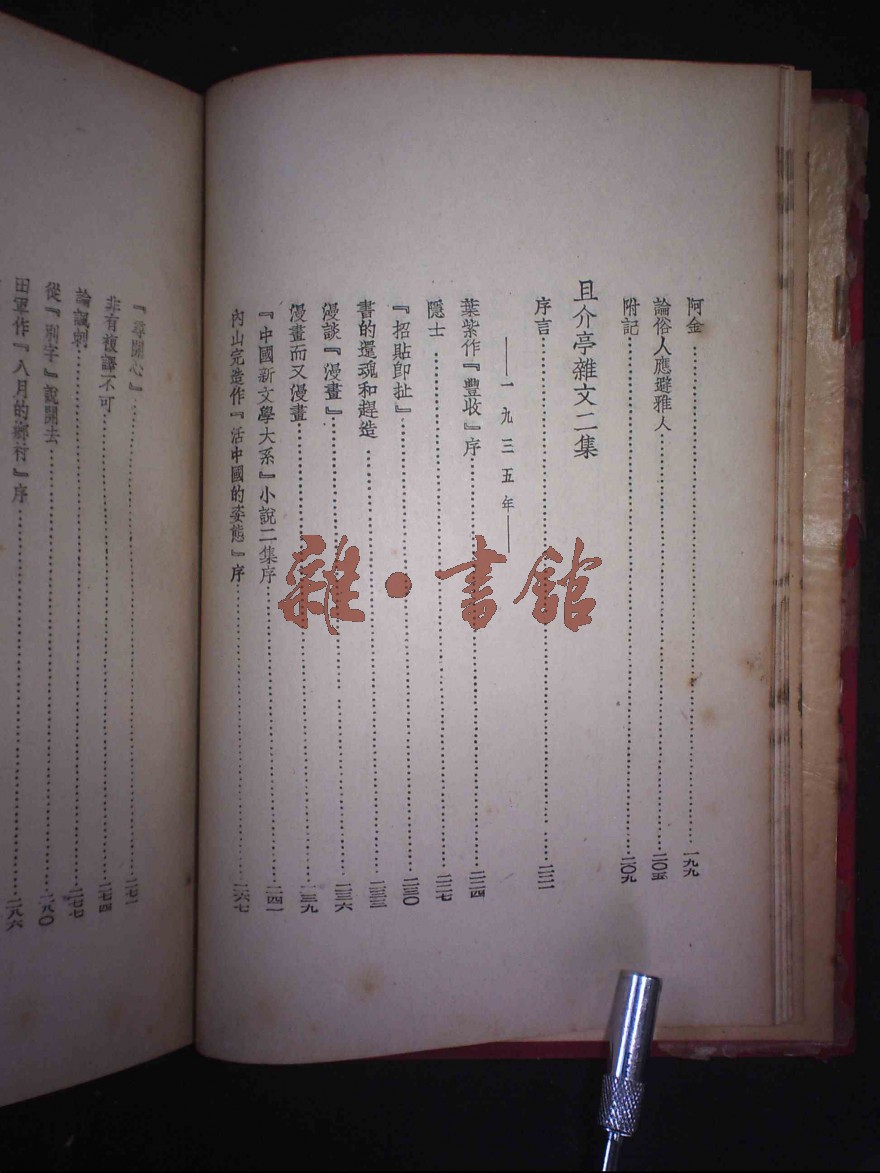 阿金……一九九
論俗人應避雅人……二〇五
附記……二〇九
且介亭雜文二集
序言……二二一
——一九三五年——
葉紫作『豐收』序……二二四
隱士……二二七
『招貼即扯』……二三〇
書的還魂和趕造……二三三
漫談『漫畫』……二三六
漫畫而又漫畫……二三九
『中國新文學大系』小說二集序……二四一
內山完造作『活中國的姿態』序……二六七
『尋開心』……二七一
非有複譯不可……二七四
論諷刺……二七七
從『別字』說開去……二八〇
田軍作『八月的鄉村』序……二八六
雜·書館